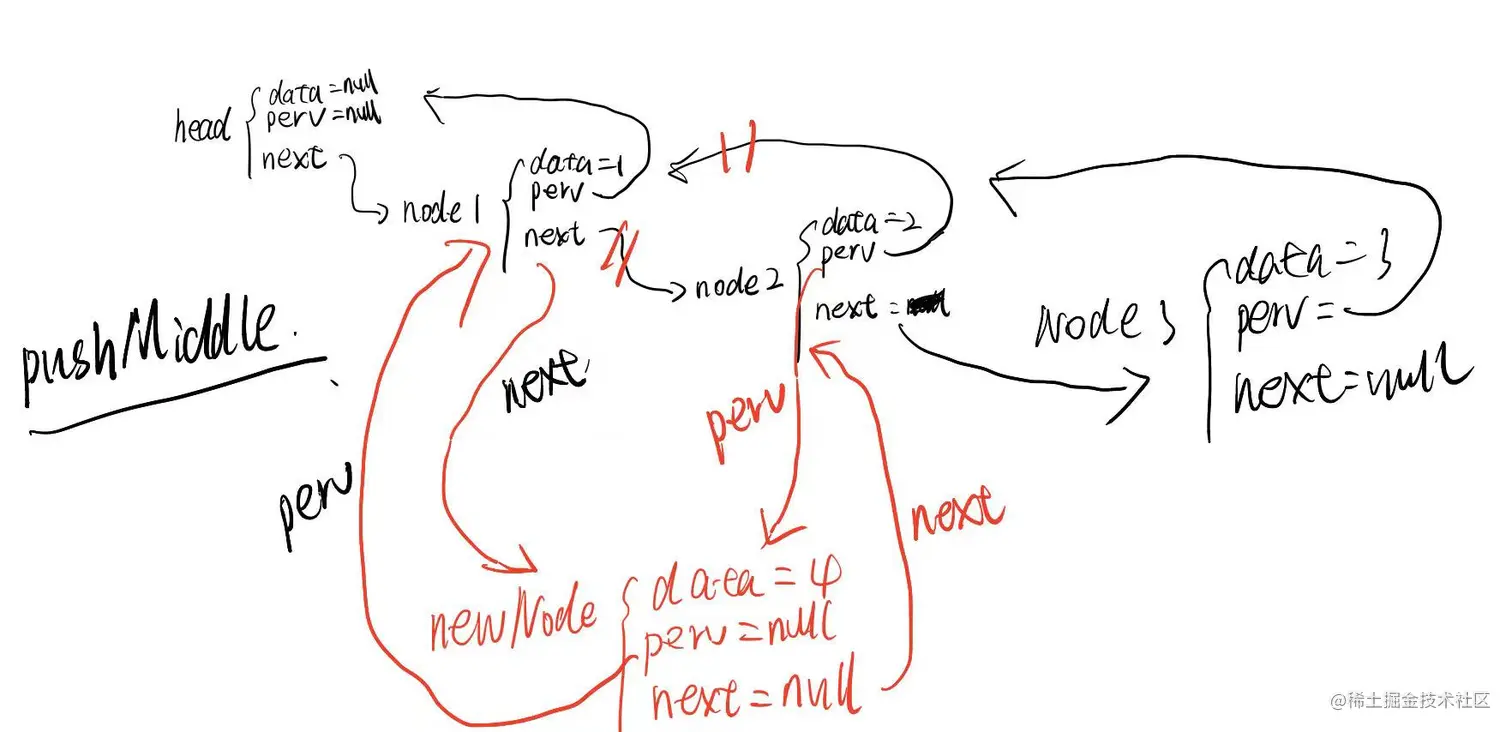 head
data=null
perv=null
next
node1
data=1
perv
next
node2
data=2
perv
next=
Node3
data=3
perv=
next=null
pushMiddle.
next
perv
perv
next
newNode
data=4
perv=null
next=null
@稀土掘金技术社区